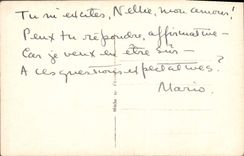 Tu m'excites, Nellie, mon amour!
Peux tu répondre, affirmative –
Car je veux en être sûr –
A ces questions expectatives?
Mario.